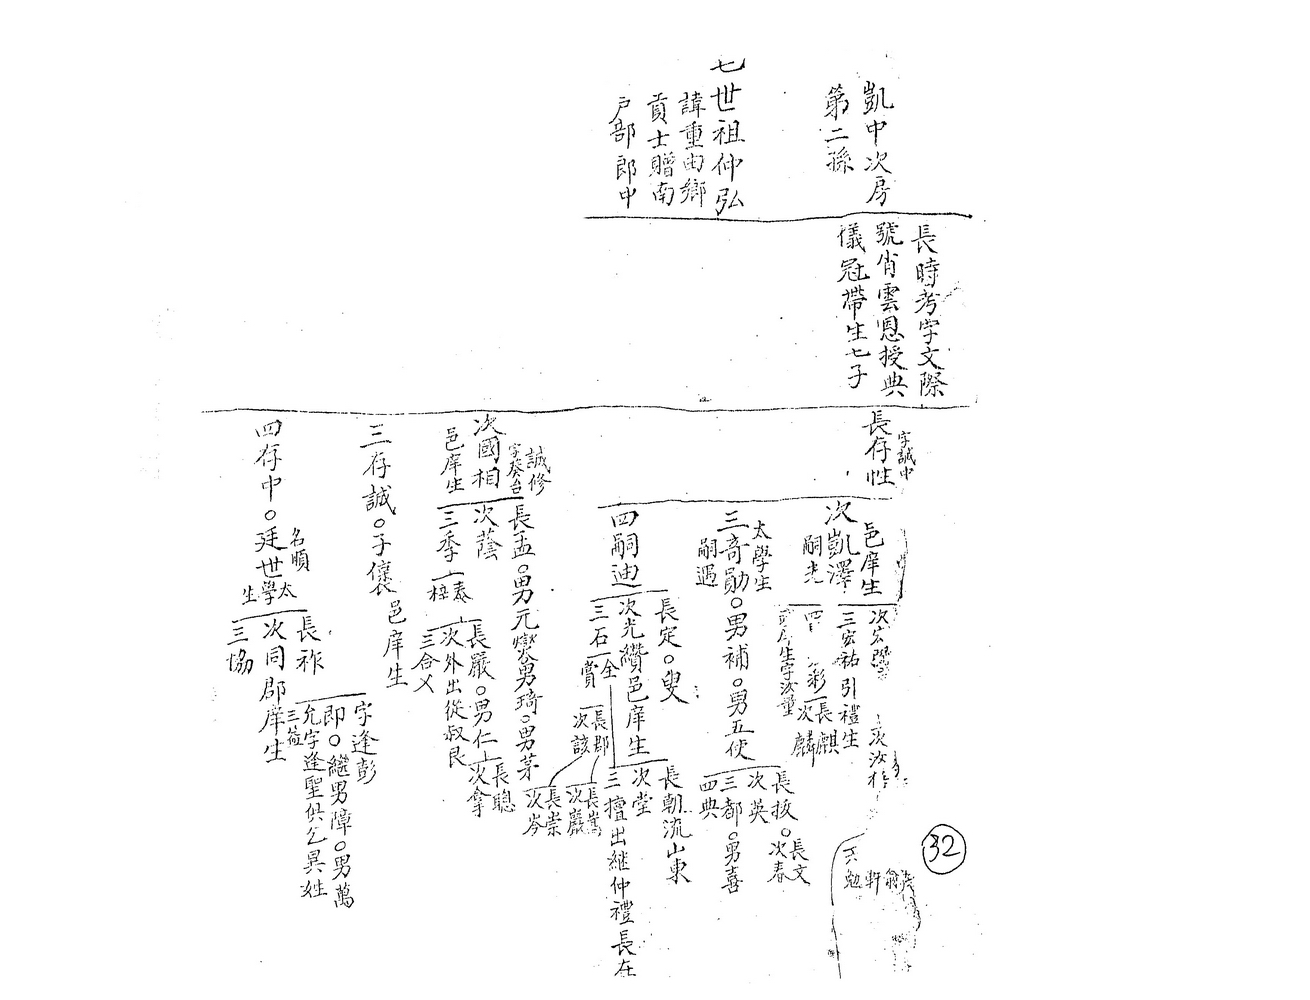 凱中次房
第二孫
七世祖仲弘
諱重由鄉
貢士贈南
戶部郎中
長時考字文際
號肖雲恩授典
儀冠帶生七子
字誠中
長存性
邑庠生
次凱澤
嗣光
三宏祐引禮生
彩
長麒
次麟
太學生
三奇勛○男補○男五使
嗣遇
長掞○
長文
次春
次英
三都○男喜
四典
四嗣迪
長定○
次光纘邑庠生
長朝流山東
次堂
三擅出继仲禮長在
三石
全
賞
長郡
次該
長嵩
次巖
長崇
次岑
誠修
字葵台
次國相
邑庠生
長孟○男元燮男琦○男茅
次蔭
三季
長嚴○男仁
長聰
次拿
次外出從叔艮
三合
三存誠○子儀邑庠生
四存中○廷世
名順
太學生
長祚
次同郡庠生
三協
字逢彭
即○繼男障○男萬
允字逢聖供乞異姓
32